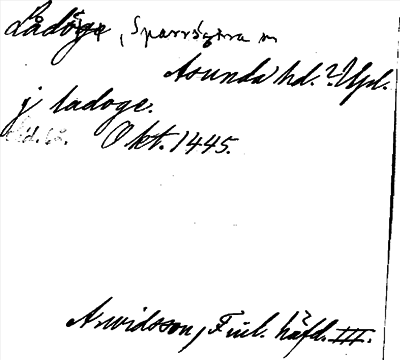 Ladöga, Sparrsätra sn
Asunda hd. Upl.
j ladoge.
Okt. 1445.
Arwidsson, Finl. häfd. III.